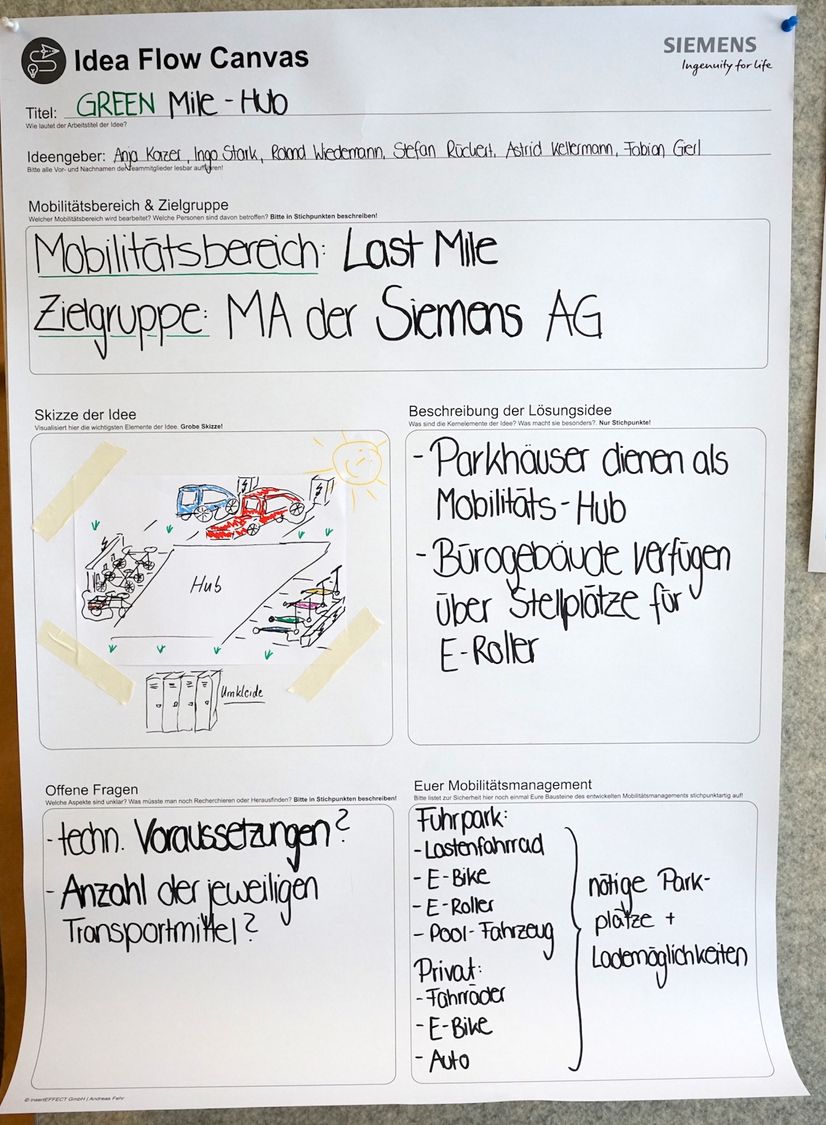 Idea Flow Canvas
SIEMENS
Ingenuity for life
Titel: GREEN Mile - Hub
Wie lautet der Arbeitstitel der Idee?
Ideengeber: Anja Karzer, Ingo Stark, Roland Wiedemann, Stefan Rückert, Astrid Kellermann, Fabian Gierl
Bitte alle Vor- und Nachnamen der Teammitglieder lesbar aufführen!
Mobilitätsbereich & Zielgruppe
Welcher Mobilitätsbereich wird bearbeitet? Welche Personen sind davon betroffen? Bitte in Stichpunkten beschreiben!
Mobilitätsbereich: Last Mile
Zielgruppe: MA der Siemens AG
Skizze der Idee
Visualisiert hier die wichtigsten Elemente der Idee. Grobe Skizze!
Hub
Umkleide
Beschreibung der Lösungsidee
Was sind die Kernelemente der Idee? Was macht sie besonders?. Nur Stichpunkte!
- Parkhäuser dienen als
Mobilitäts-Hub
- Bürogebäude verfügen
über Stellplätze für
E-Roller
Offene Fragen
Welche Aspekte sind unklar? Was müsste man noch Recherchieren oder Herausfinden? Bitte in Stichpunkten beschreiben!
- techn. Voraussetzungen?
- Anzahl der jeweiligen
Transportmittel?
Euer Mobilitätsmanagement
Bitte listet zur Sicherheit hier noch einmal Eure Bausteine des entwickelten Mobilitätsmanagements stichpunktartig auf!
Fuhrpark:
- Lastenfahrrad
- E-Bike
- E-Roller
- Pool-Fahrzeug
Privat:
- Fahrräder
- E-Bike
- Auto
nötige Park-
plätze +
Lademöglichkeiten
© InsertEFFECT GmbH | Andreas Fehr